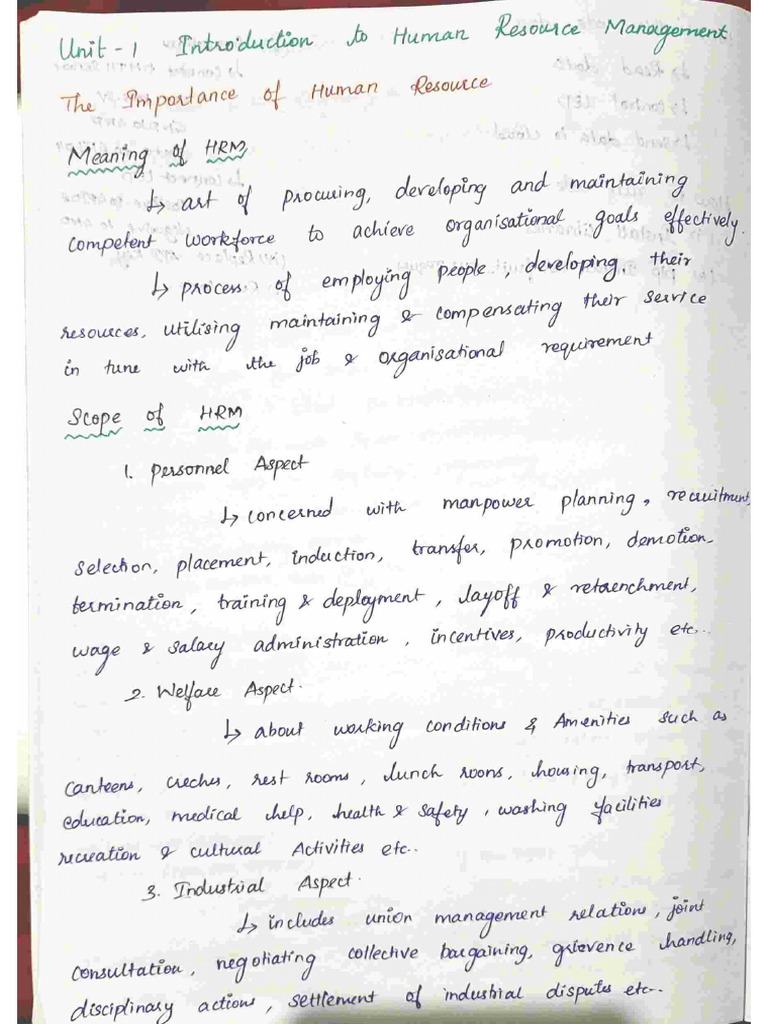 Unit - 1 Introduction to Human Resource Management
The Importance of Human Resource
Meaning of HRM
↳ art of procuring, developing and maintaining
competent workforce to achieve organisational goals effectively.
↳ process of employing people, developing their
resources, utilising maintaining & compensating their service
in tune with the job & organisational requirement
Scope of HRM
1. Personnel Aspect
↳ concerned with manpower planning, recruitment,
selection, placement, induction, transfer, promotion, demotion,
termination, training & deployment, layoff & retrenchment,
wage & salary administration, incentives, productivity etc..
2. Welfare Aspect.
↳ about working conditions & Amenities such as
canteens, creches, rest rooms, lunch rooms, housing, transport,
education, medical help, health & safety, washing facilities
recreation & cultural Activities etc..
3. Industrial Aspect.
↳ includes union management relations, joint
consultation, negotiating collective bargaining, grievence handling,
disciplinary actions, settlement of industrial disputes etc..